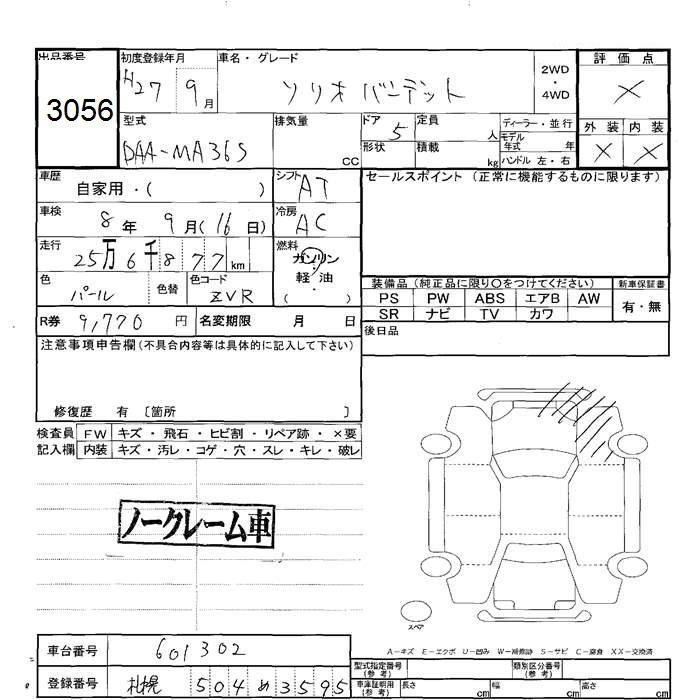 出品番号
3056
初度登録年月
H27 9月
車名・グレード
ソリオ バンデット
2WD
・
4WD
評価点
×
外装 内装
× ×
型式
DAA-MA36S
排気量
cc
ドア
5
形状
定員
人
積載
kg
ディーラー・並行
モデル
年式 年
ハンドル 左・右
車歴
自家用・( )
シフト
AT
車検
8年 9月(16日)
冷房
AC
走行
25万6千877km
燃料
ガソリン
・
軽油
( )
色
パール
色替
色コード
ZVR
R券
9,770円
名変期限 月 日
セールスポイント (正常に機能するものに限ります)
装備品 (純正品に限り○をつけてください)
新車保証書
PS PW ABS エアB AW
有・無
SR ナビ TV カワ
後日品
注意事項申告欄(不具合内容等は具体的に記入して下さい)
修復歴 有 〔箇所 〕
検査員 FW キズ・飛石・ヒビ割・リペア跡・×要
記入欄 内装 キズ・汚レ・コゲ・穴・スレ・キレ・破レ
ノークレーム車
スペア
A-キズ E-エクボ U-凹み W-補修跡 S-サビ C-腐食 XX-交換済
車台番号
601302
登録番号
札幌 504 め 3595
型式指定番号
(参考)
類別区分番号
(参考)
車庫証明用
(参考)
長さ cm
幅 cm
高さ cm